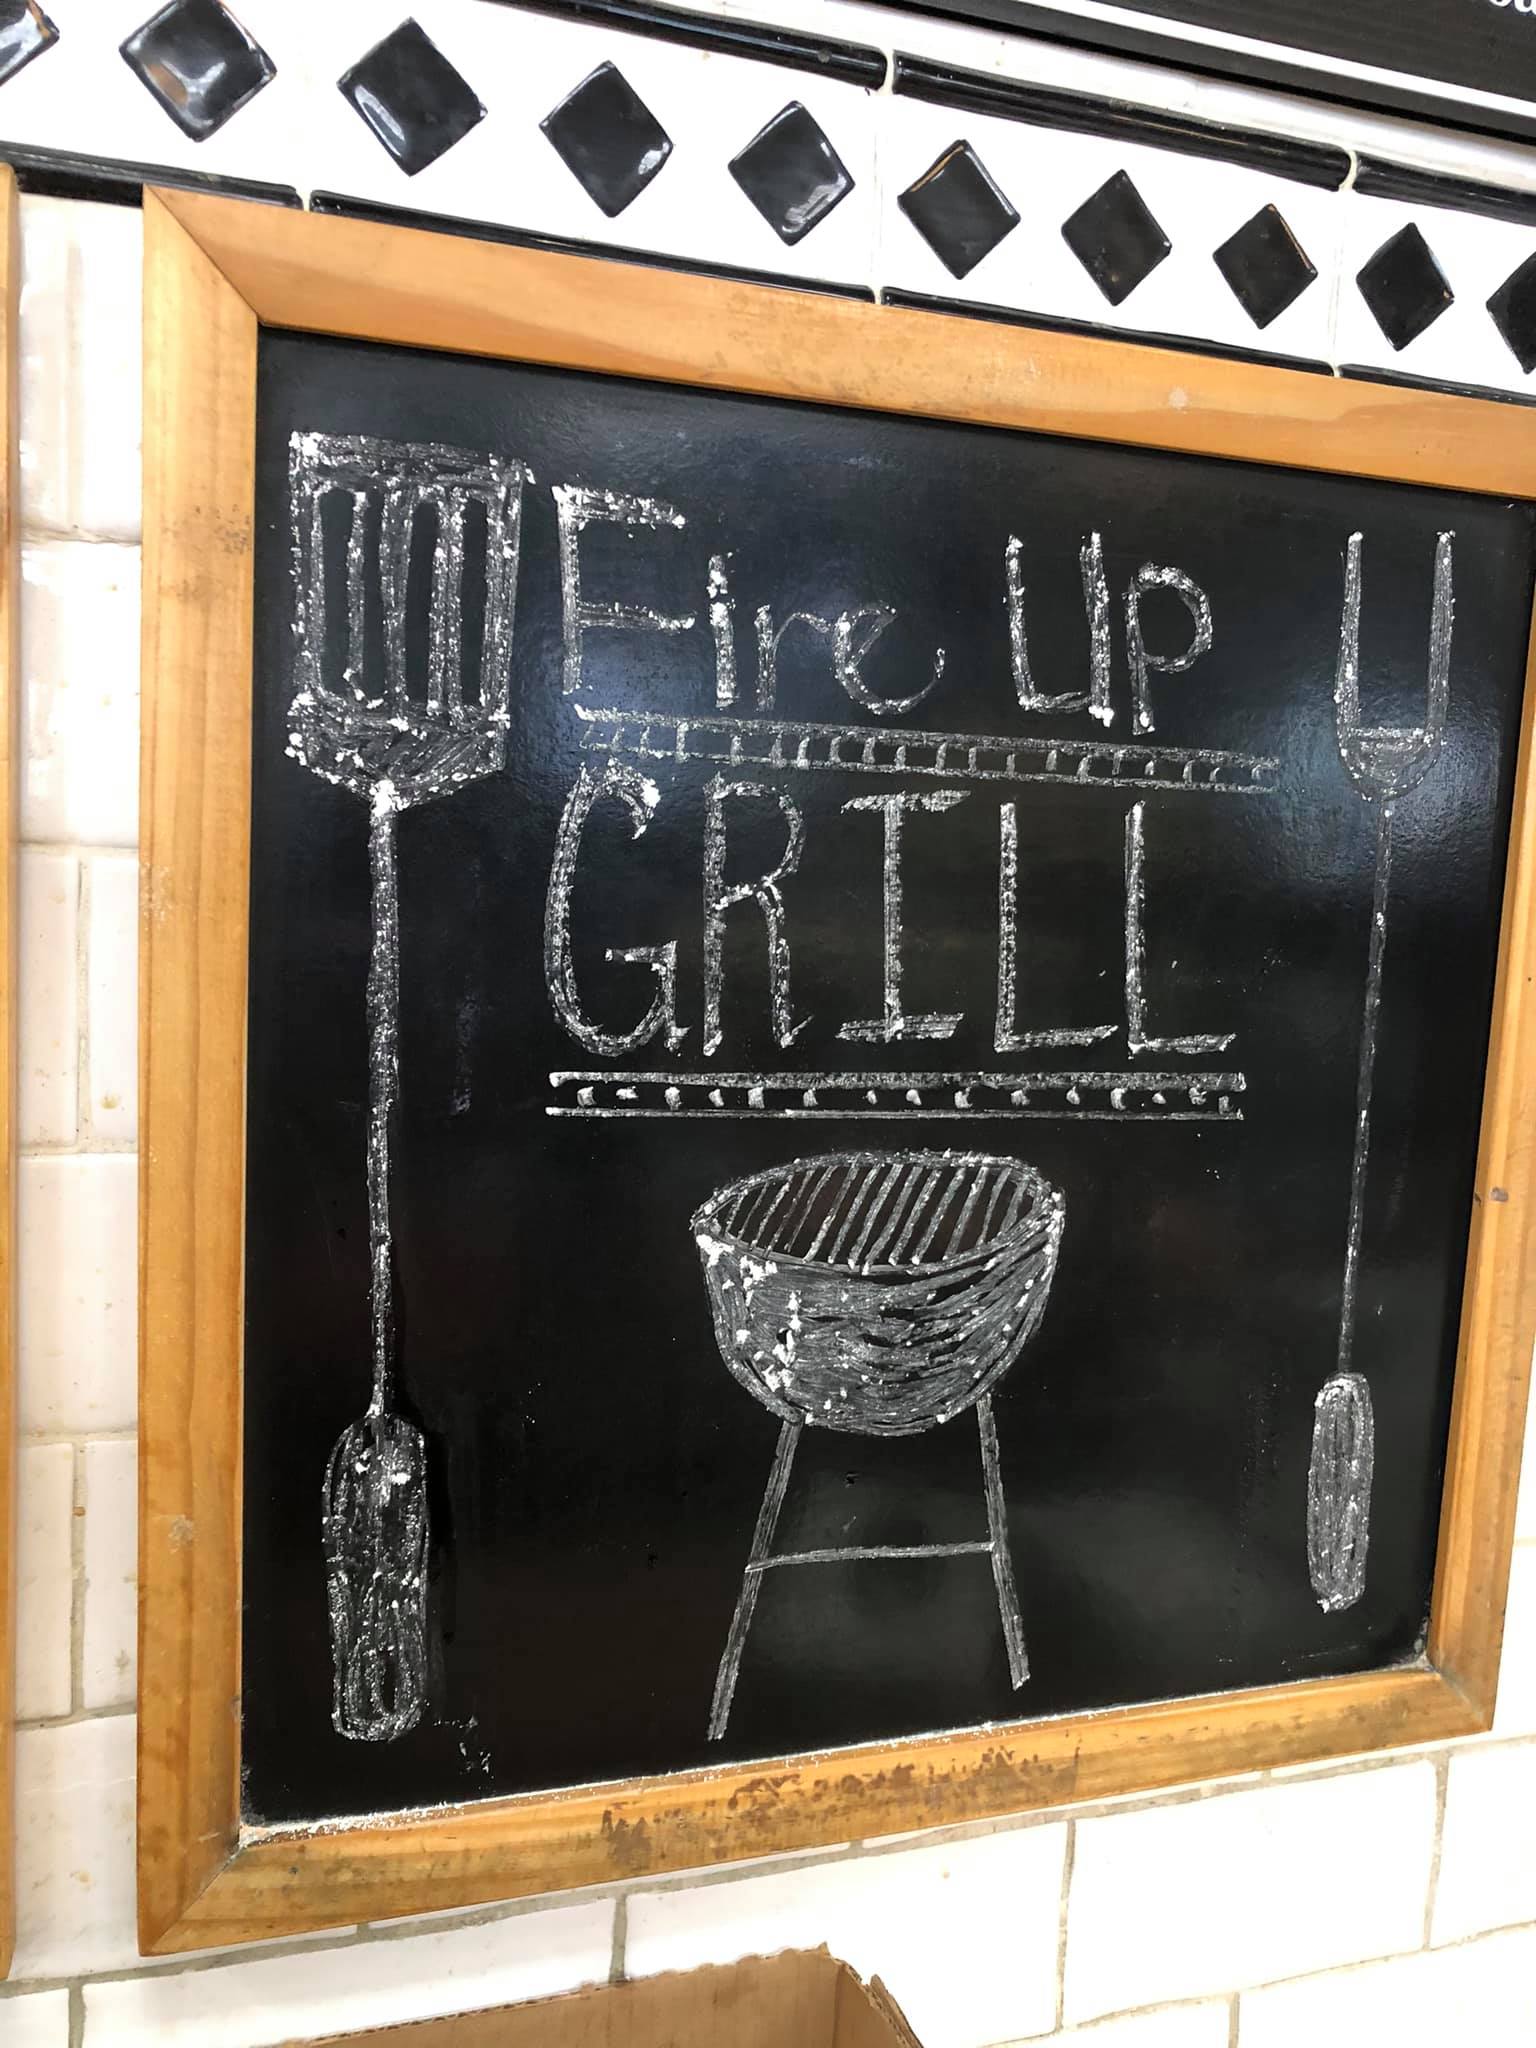 Fire Up
GRILL